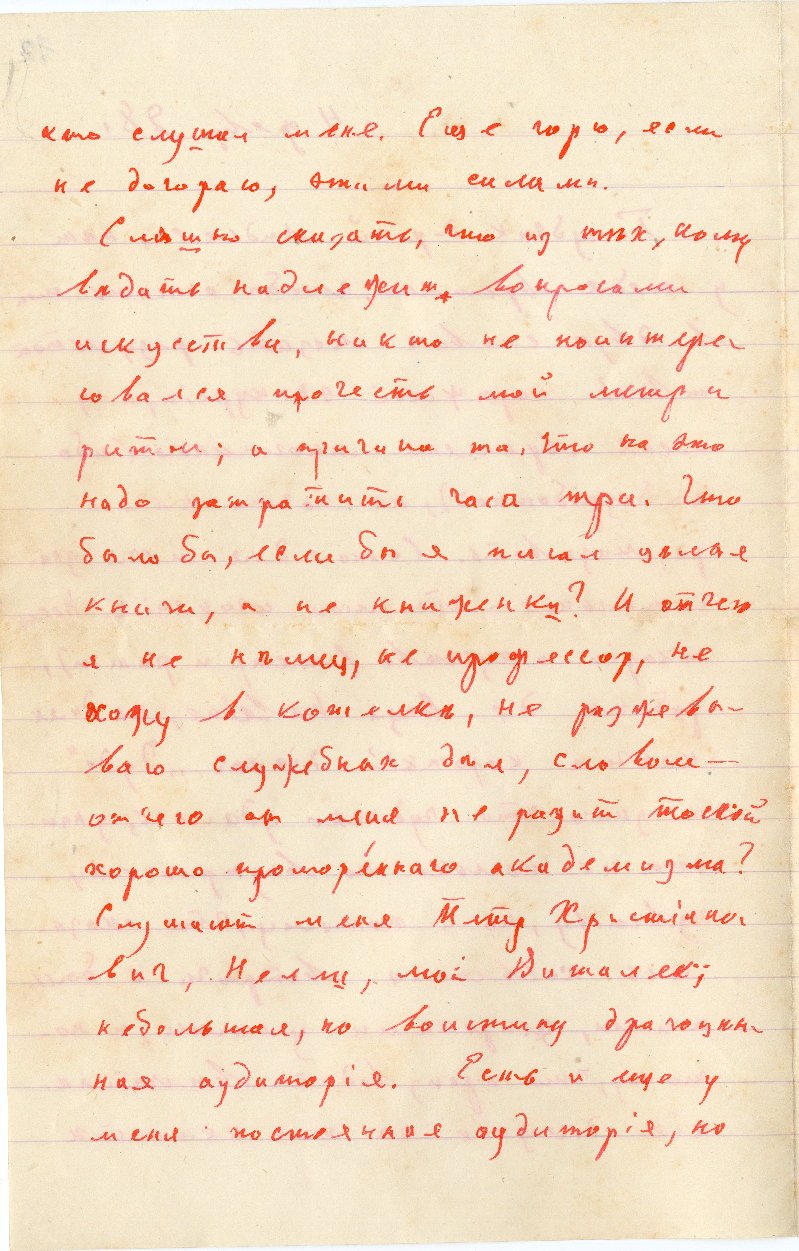 кто слушал меня. Еще горю, если
не догораю, этими силами.
Смѣшно сказать, что из тѣх, кому
вѣдать надлежит, вопросами
искусства, никто не поинтере-
совался прочесть мой метро
ритм; а причина та, что на это
надо затратить часа три. Что
было бы, если бы я писал цѣлые
книги, а не книженки? И отчего
я не нѣмец, не профессор, не
хожу в котелкѣ, не разжевы-
ваю служебных дѣл, словом —
отчего от меня не разит тоской
хорошо проморённаго академизма?
Слушают меня Петр Христіано-
вич, Нелли, мой Виталик;
небольшая, но воистину драгоцѣн-
ная аудиторія. Есть и еще у
меня постоянная аудиторія, но